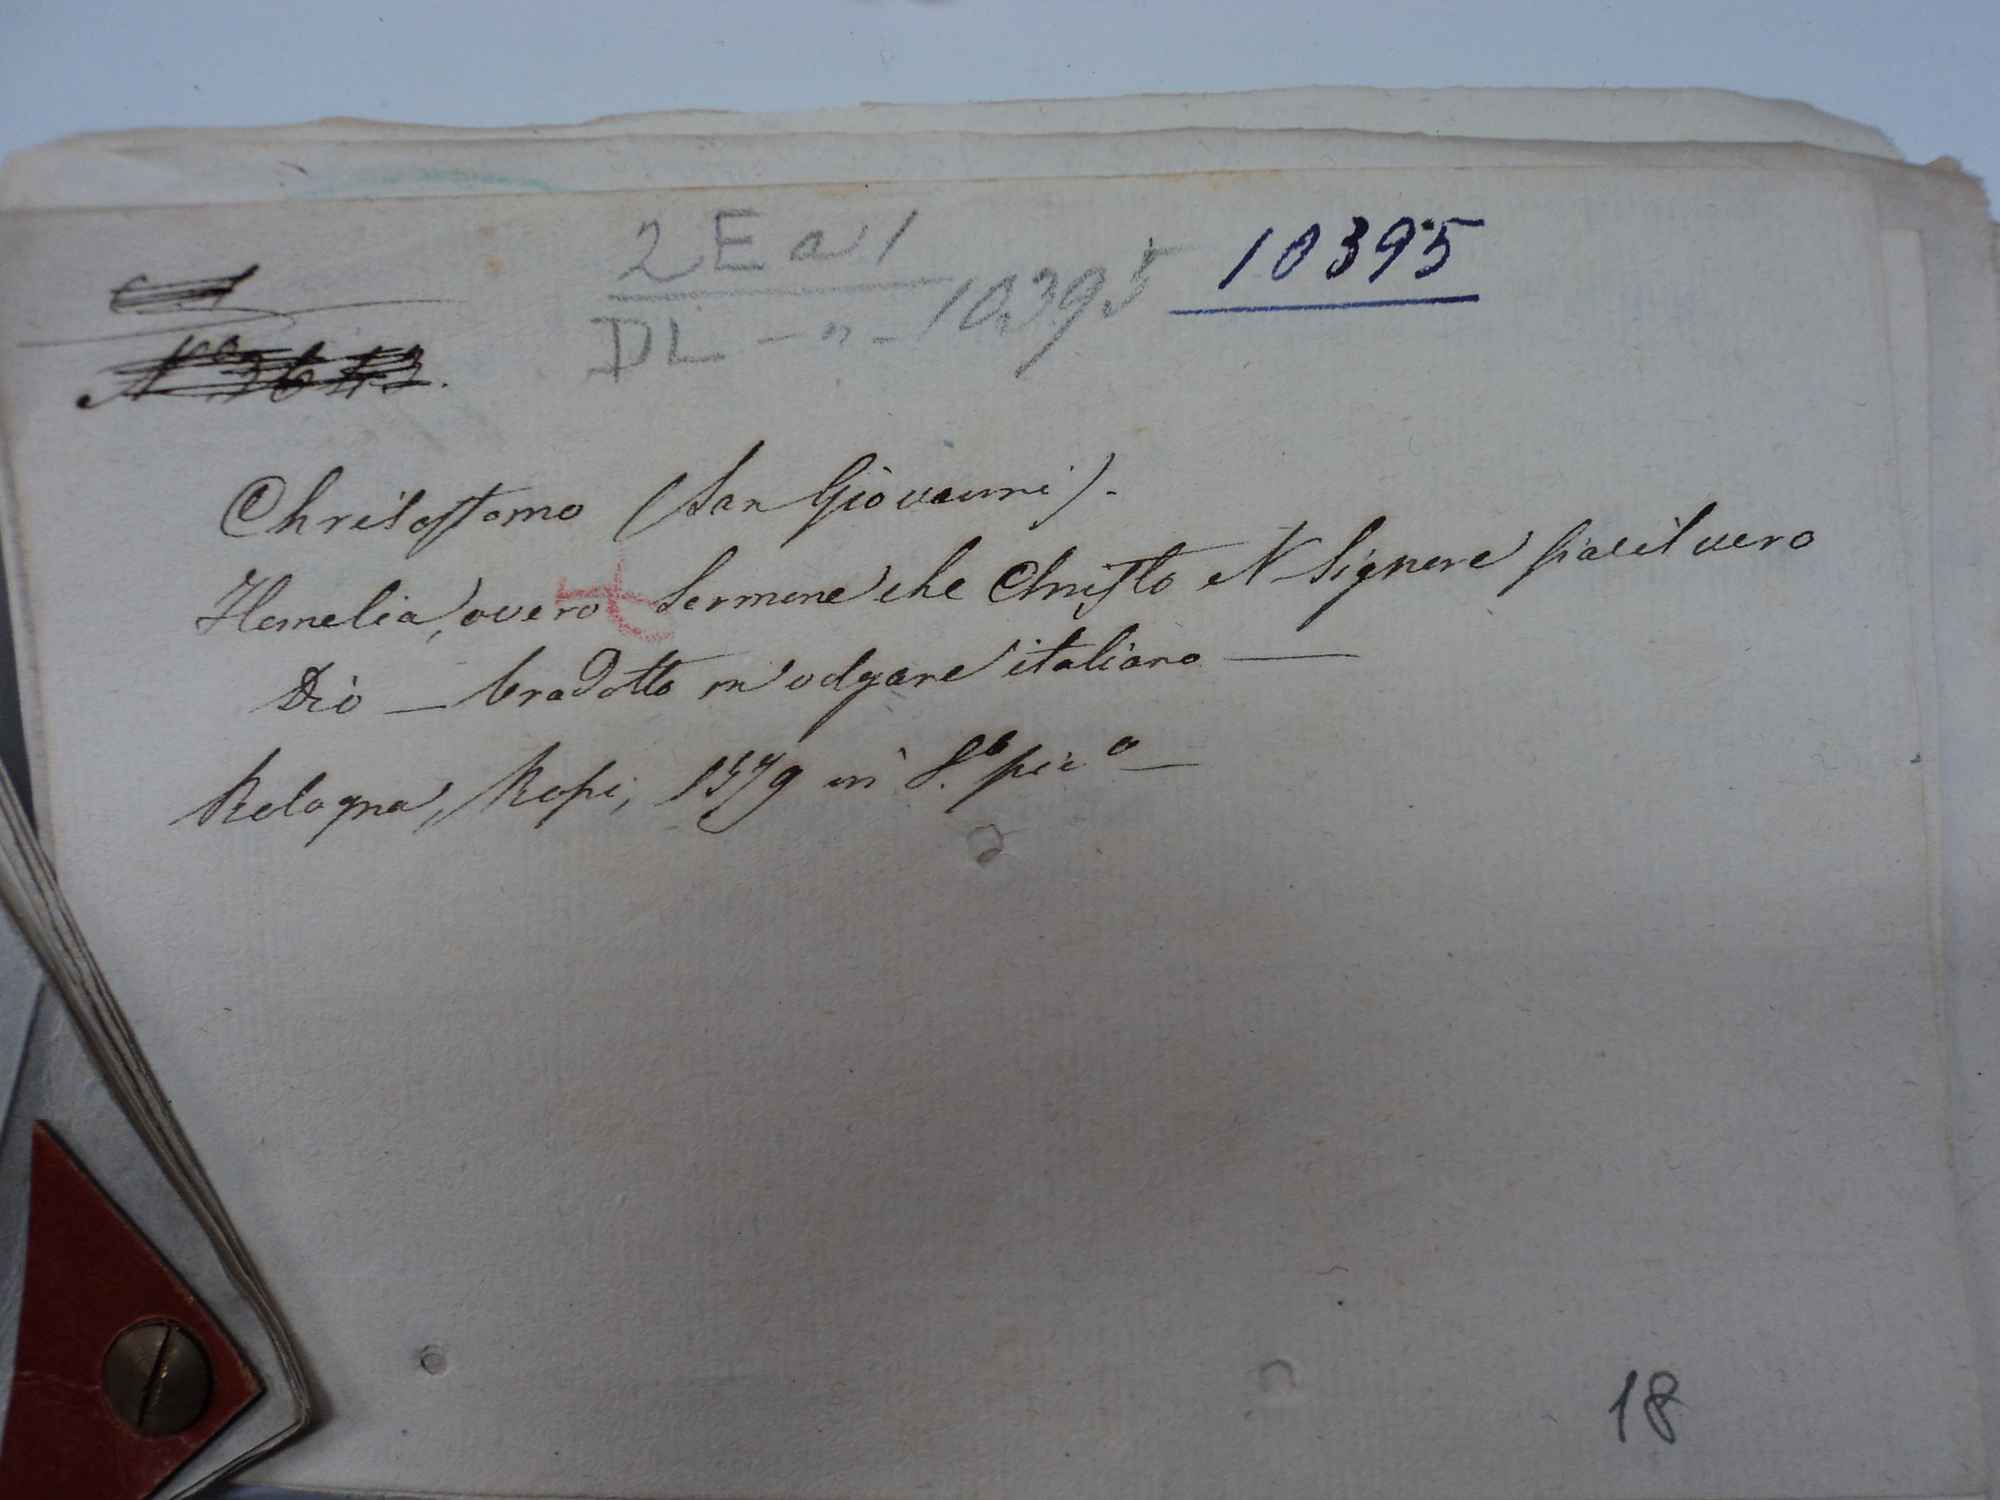 2 E a 1
DL - n - 10395
10395
No 3643.
Chrisostomo (San Giovanni).
Homelia, overo Sermone che Christo N Signore sia il vero
Dio — tradotto in volgare italiano —
Bologna, Rossi, 1579 in 8.o pic.o —
18